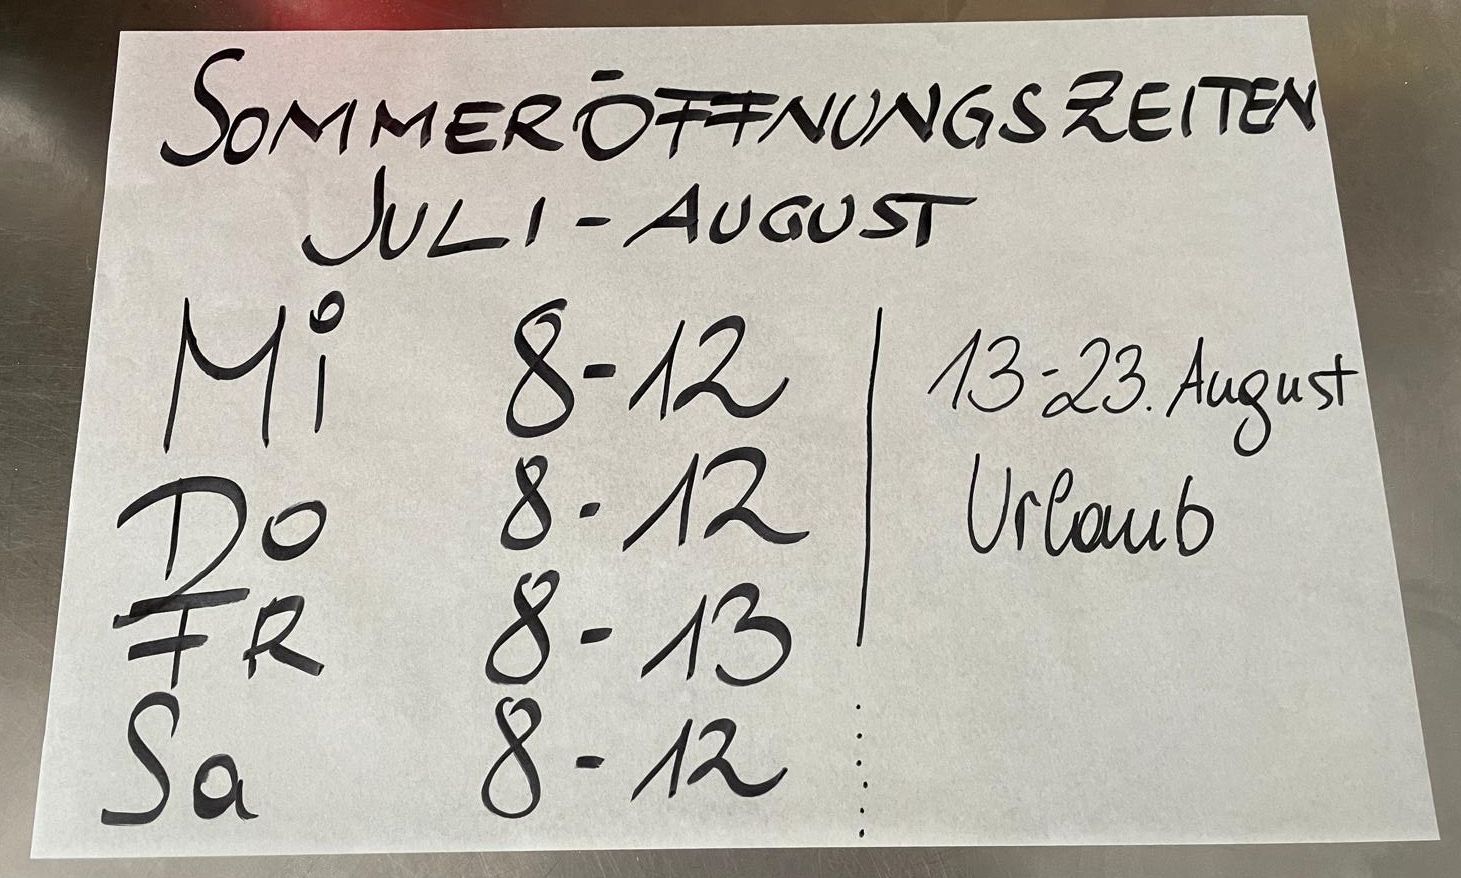 SOMMERÖFFNUNGSZEITEN
JULI - AUGUST
Mi 8-12
Do 8-12
FR 8-13
Sa 8-12
13-23. August
Urlaub